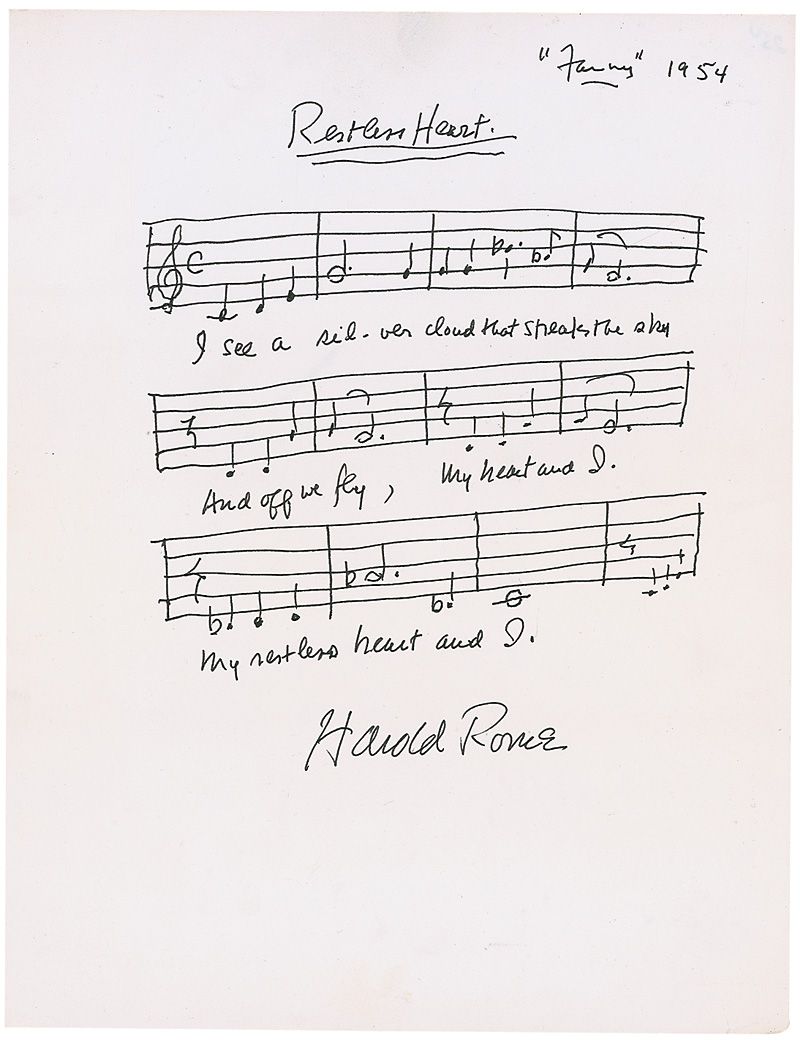 "Fanny" 1954
Restless Heart.
I see a sil-ver cloud that streaks the sky
And off we fly, My heart and I.
My restless heart and I.
Harold Rome